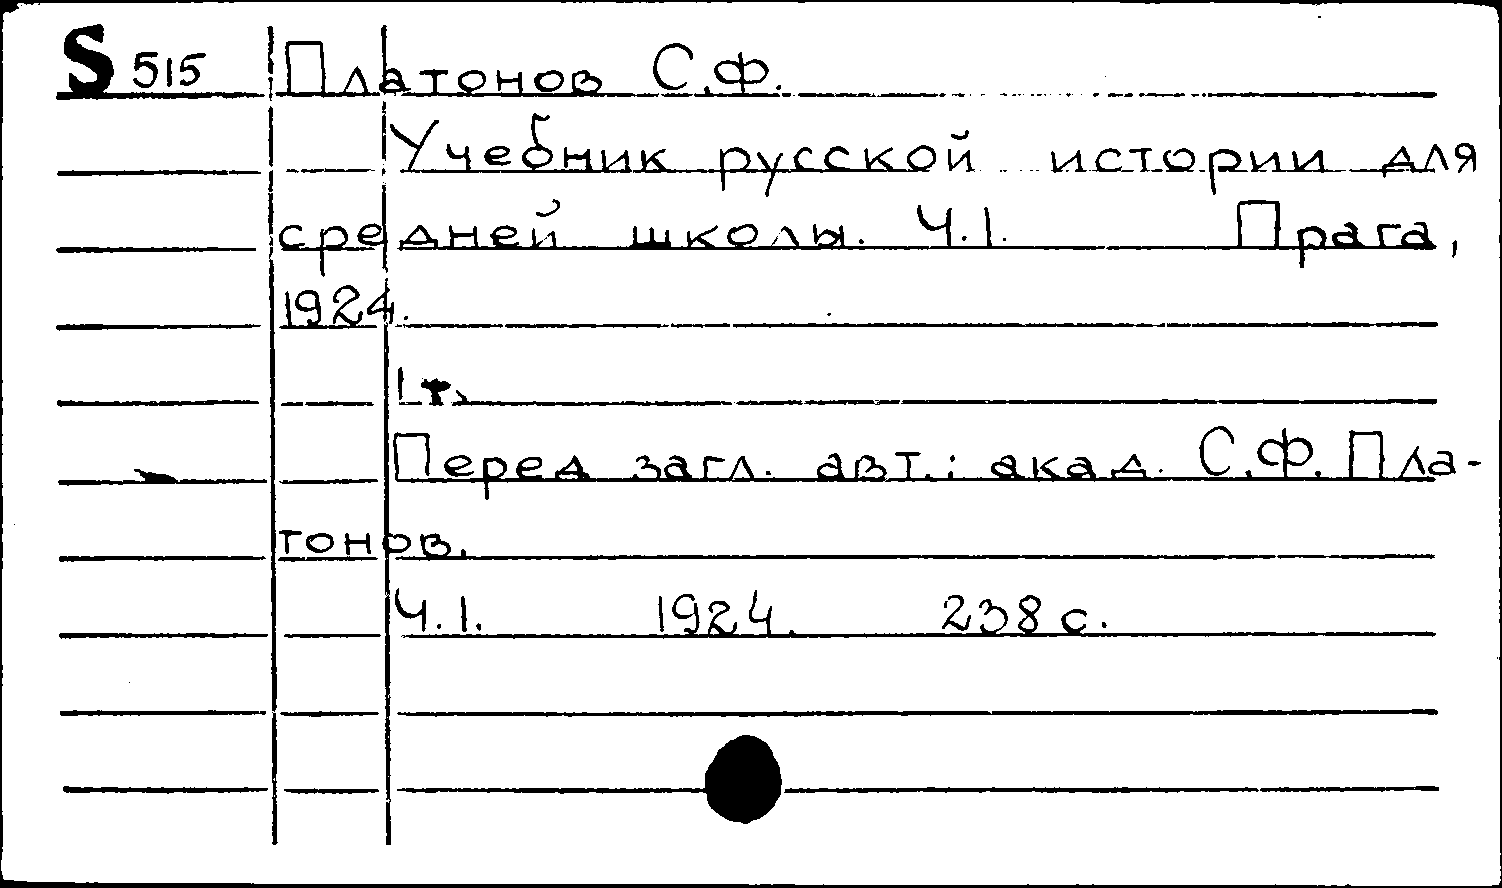 S 515 Платонов С.Ф.
Учебник русской истории для
средней школы. Ч.1. Прага,
1924.
1 т.
Перед загл. авт.: акад. С.Ф. Пла-
тонов.
Ч.1. 1924. 238 с.